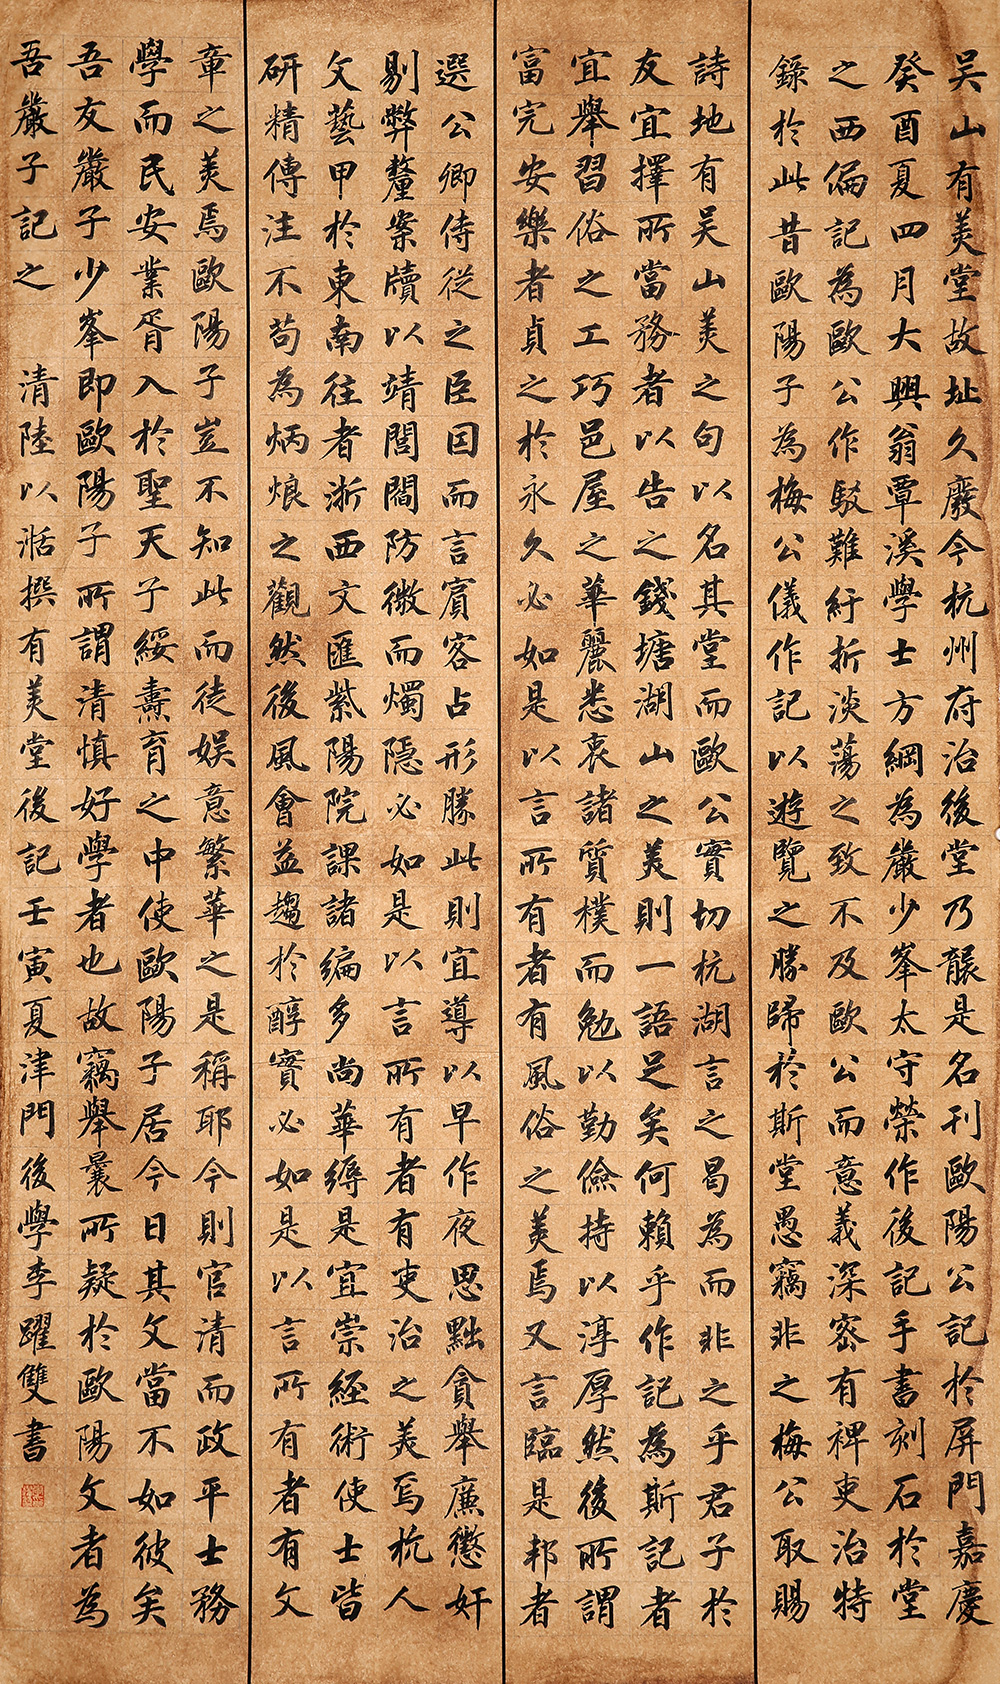 吳山有美堂故址久廢今杭州府治後堂乃襲是名刊歐陽公記於屏門嘉慶
癸酉夏四月大興翁覃溪學士方綱為嚴少峯太守榮作後記手書刻石於堂
之西偏記為歐公作駁難紆折淡蕩之致不及歐公而意義深密有裨吏治特
錄於此昔歐陽子為梅公儀作記以遊覽之勝歸於斯堂愚竊非之梅公取賜
詩地有吳山美之句以名其堂而歐公實切杭湖言之曷為而非之乎君子於
友宜擇所當務者以告之錢塘湖山之美則一語足矣何賴乎作記為斯記者
宜舉習俗之工巧邑屋之華麗悉裒諸質樸而勉以勤儉持以淳厚然後所謂
富完安樂者貞之於永久必如是以言所有者有風俗之美焉又言臨是邦者
選公卿侍從之臣因而言賓客占形勝此則宜導以早作夜思黜貪舉廉懲奸
剔弊釐案牘以靖閭閻防微而燭隱必如是以言所有者有吏治之美焉杭人
文藝甲於東南往者浙西文匯紫陽院課諸編多尚華縟是宜崇經術使士皆
研精傳注不苟為炳烺之觀然後風會益趨於醇實必如是以言所有者有文
章之美焉歐陽子豈不知此而徒娛意繁華之是稱耶今則官清而政平士務
學而民安業胥入於聖天子綏燾育之中使歐陽子居今日其文當不如彼矣
吾友嚴子少峯即歐陽子所謂清慎好學者也故竊舉曩所疑於歐陽文者為
吾嚴子記之 清陸以湉撰有美堂後記壬寅夏津門後學李躍雙書